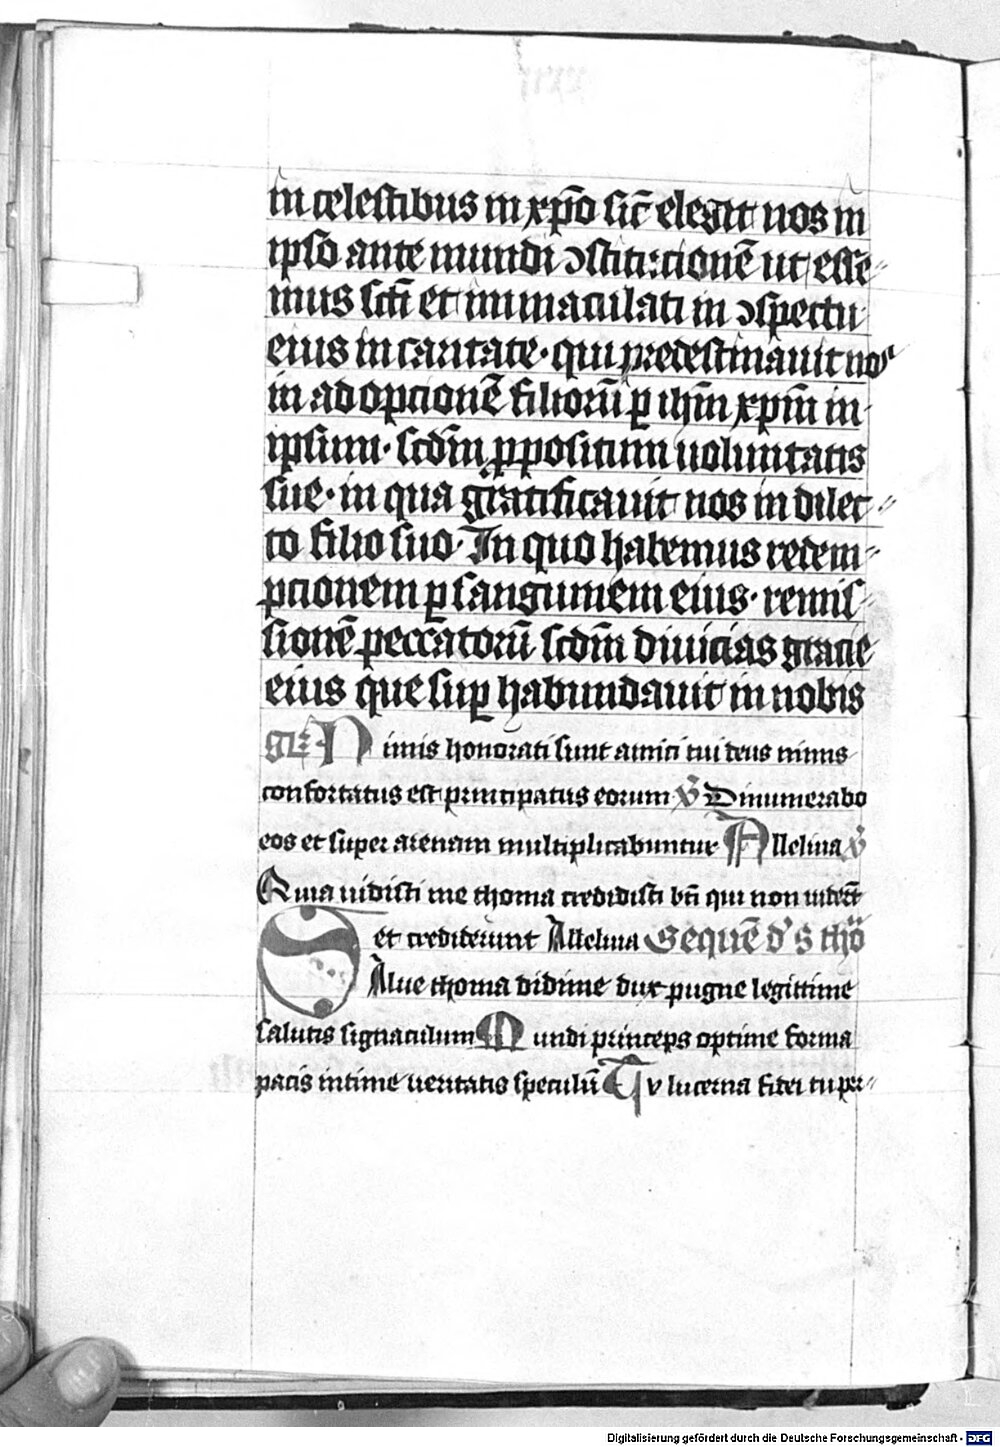 in celestibus in xp̄o sic̄ elegit nos in
ipso ante mundi ɔstitucionē ut esse⸗
mus sc̄ti et immaculati in ɔspectu
eius in caritate · qui predestinauit nos
in adopcionē filiorū ꝑ ihm̄ xpm̄ in
ipsum · scd̄m ꝓpositum uoluntatis
sue · in qua gratificauit nos in dilec⸗
to filio suo · In quo habemus redem⸗
pcionem ꝑ sanguinem eius · remis⸗
sionē peccatorū scd̄m diuicias gracie
eius que suꝑ habundauit in nobis
Nimis honorati sunt amici tui deus nimis
confortatus est principatus eorum ℣ Dinumerabo
eos et super arenam multiplicabuntur Alleluia ℣
Quia uidisti me thoma credidisti bn̄ qui non uider̄t
et crediderunt Alleluia Sequē d's tho
SAlue thoma didime dux pugne legittime
salutis signaculum Mundi princeps optime forma
pacis intime ueritatis speculū Tv lucerna fidei tu per⸗
Digitalisierung gefördert durch die Deutsche Forschungsgemeinschaft - DFG